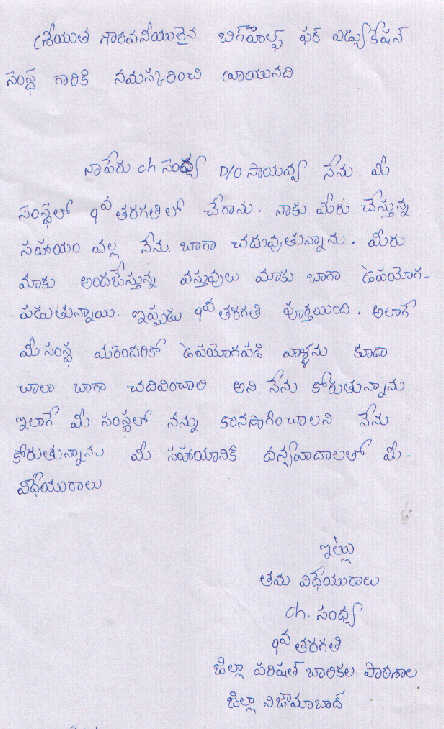 శ్రీయుత గౌరవనీయులైన బిగ్‌హెల్ప్ ఫర్ ఎడ్యుకేషన్
సంస్థ గారికి నమస్కరించి వ్రాయునది
నాపేరు ch సంధ్య D/O సాయన్న నేను మీ
సంస్థలో 9వ తరగతిలో చేరాను. నాకు మీరు చేస్తున్న
సహాయం వల్ల నేను బాగా చదువుతున్నాను. మీరు
మాకు అందచేస్తున్న వస్తువులు మాకు బాగా ఉపయోగ-
పడుతున్నాయి. ఇప్పుడు 9వ తరగతి పూర్తయింది. అలాగే
మీ సంస్థ మరెందరికో ఉపయోగపడి వాళ్ళను కూడా
చాలా బాగా చదివించాలి అని నేను కోరుతున్నాను
ఇలాగే మీ సంస్థలో నన్ను కొనసాగించాలని నేను
కోరుతున్నాను మీ సహాయానికి ధన్యవాదాలతో మీ
విధేయురాలు
ఇట్లు
తమ విధేయురాలు
ch. సంధ్య
9వ తరగతి
జిల్లా పరిషత్ బాలికల పాఠశాల
జిల్లా నిజామాబాద్